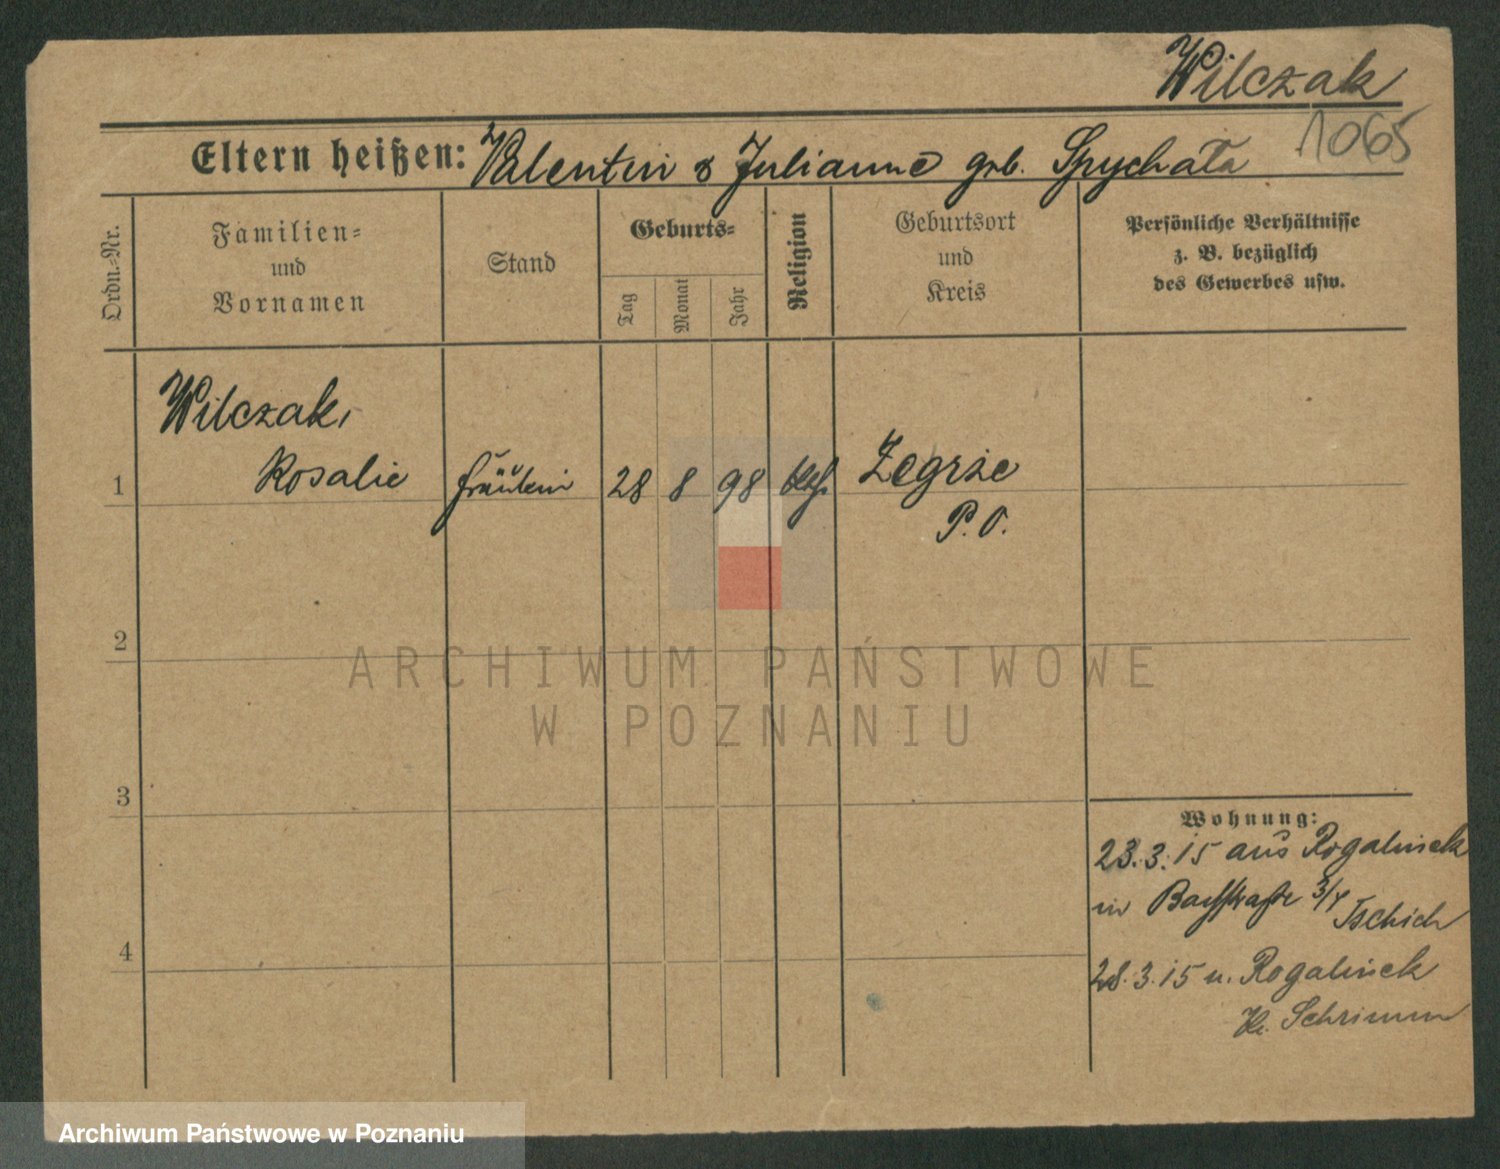 Wilczak
1065
Eltern heißen: Valentin & Julianne geb. Spychała
Ordn.-Nr.
Familien-
und
Vornamen
Stand
Geburts-
Tag
Monat
Jahr
Religion
Geburtsort
und
Kreis
Persönliche Verhältnisse
z. B. bezüglich
des Gewerbes usw.
Wilczak,
1 Rosalie Fräulein 28 8 98 kath. Zegrze
P. O.
2
ARCHIWUM PAŃSTWOWE
W POZNANIU
3
Wohnung:
23.3.15 aus Rogalinek
in Bachstraße 3/4 Tschich
4
28.3.15 n. Rogalinek
Kr. Schrimm
Archiwum Państwowe w Poznaniu